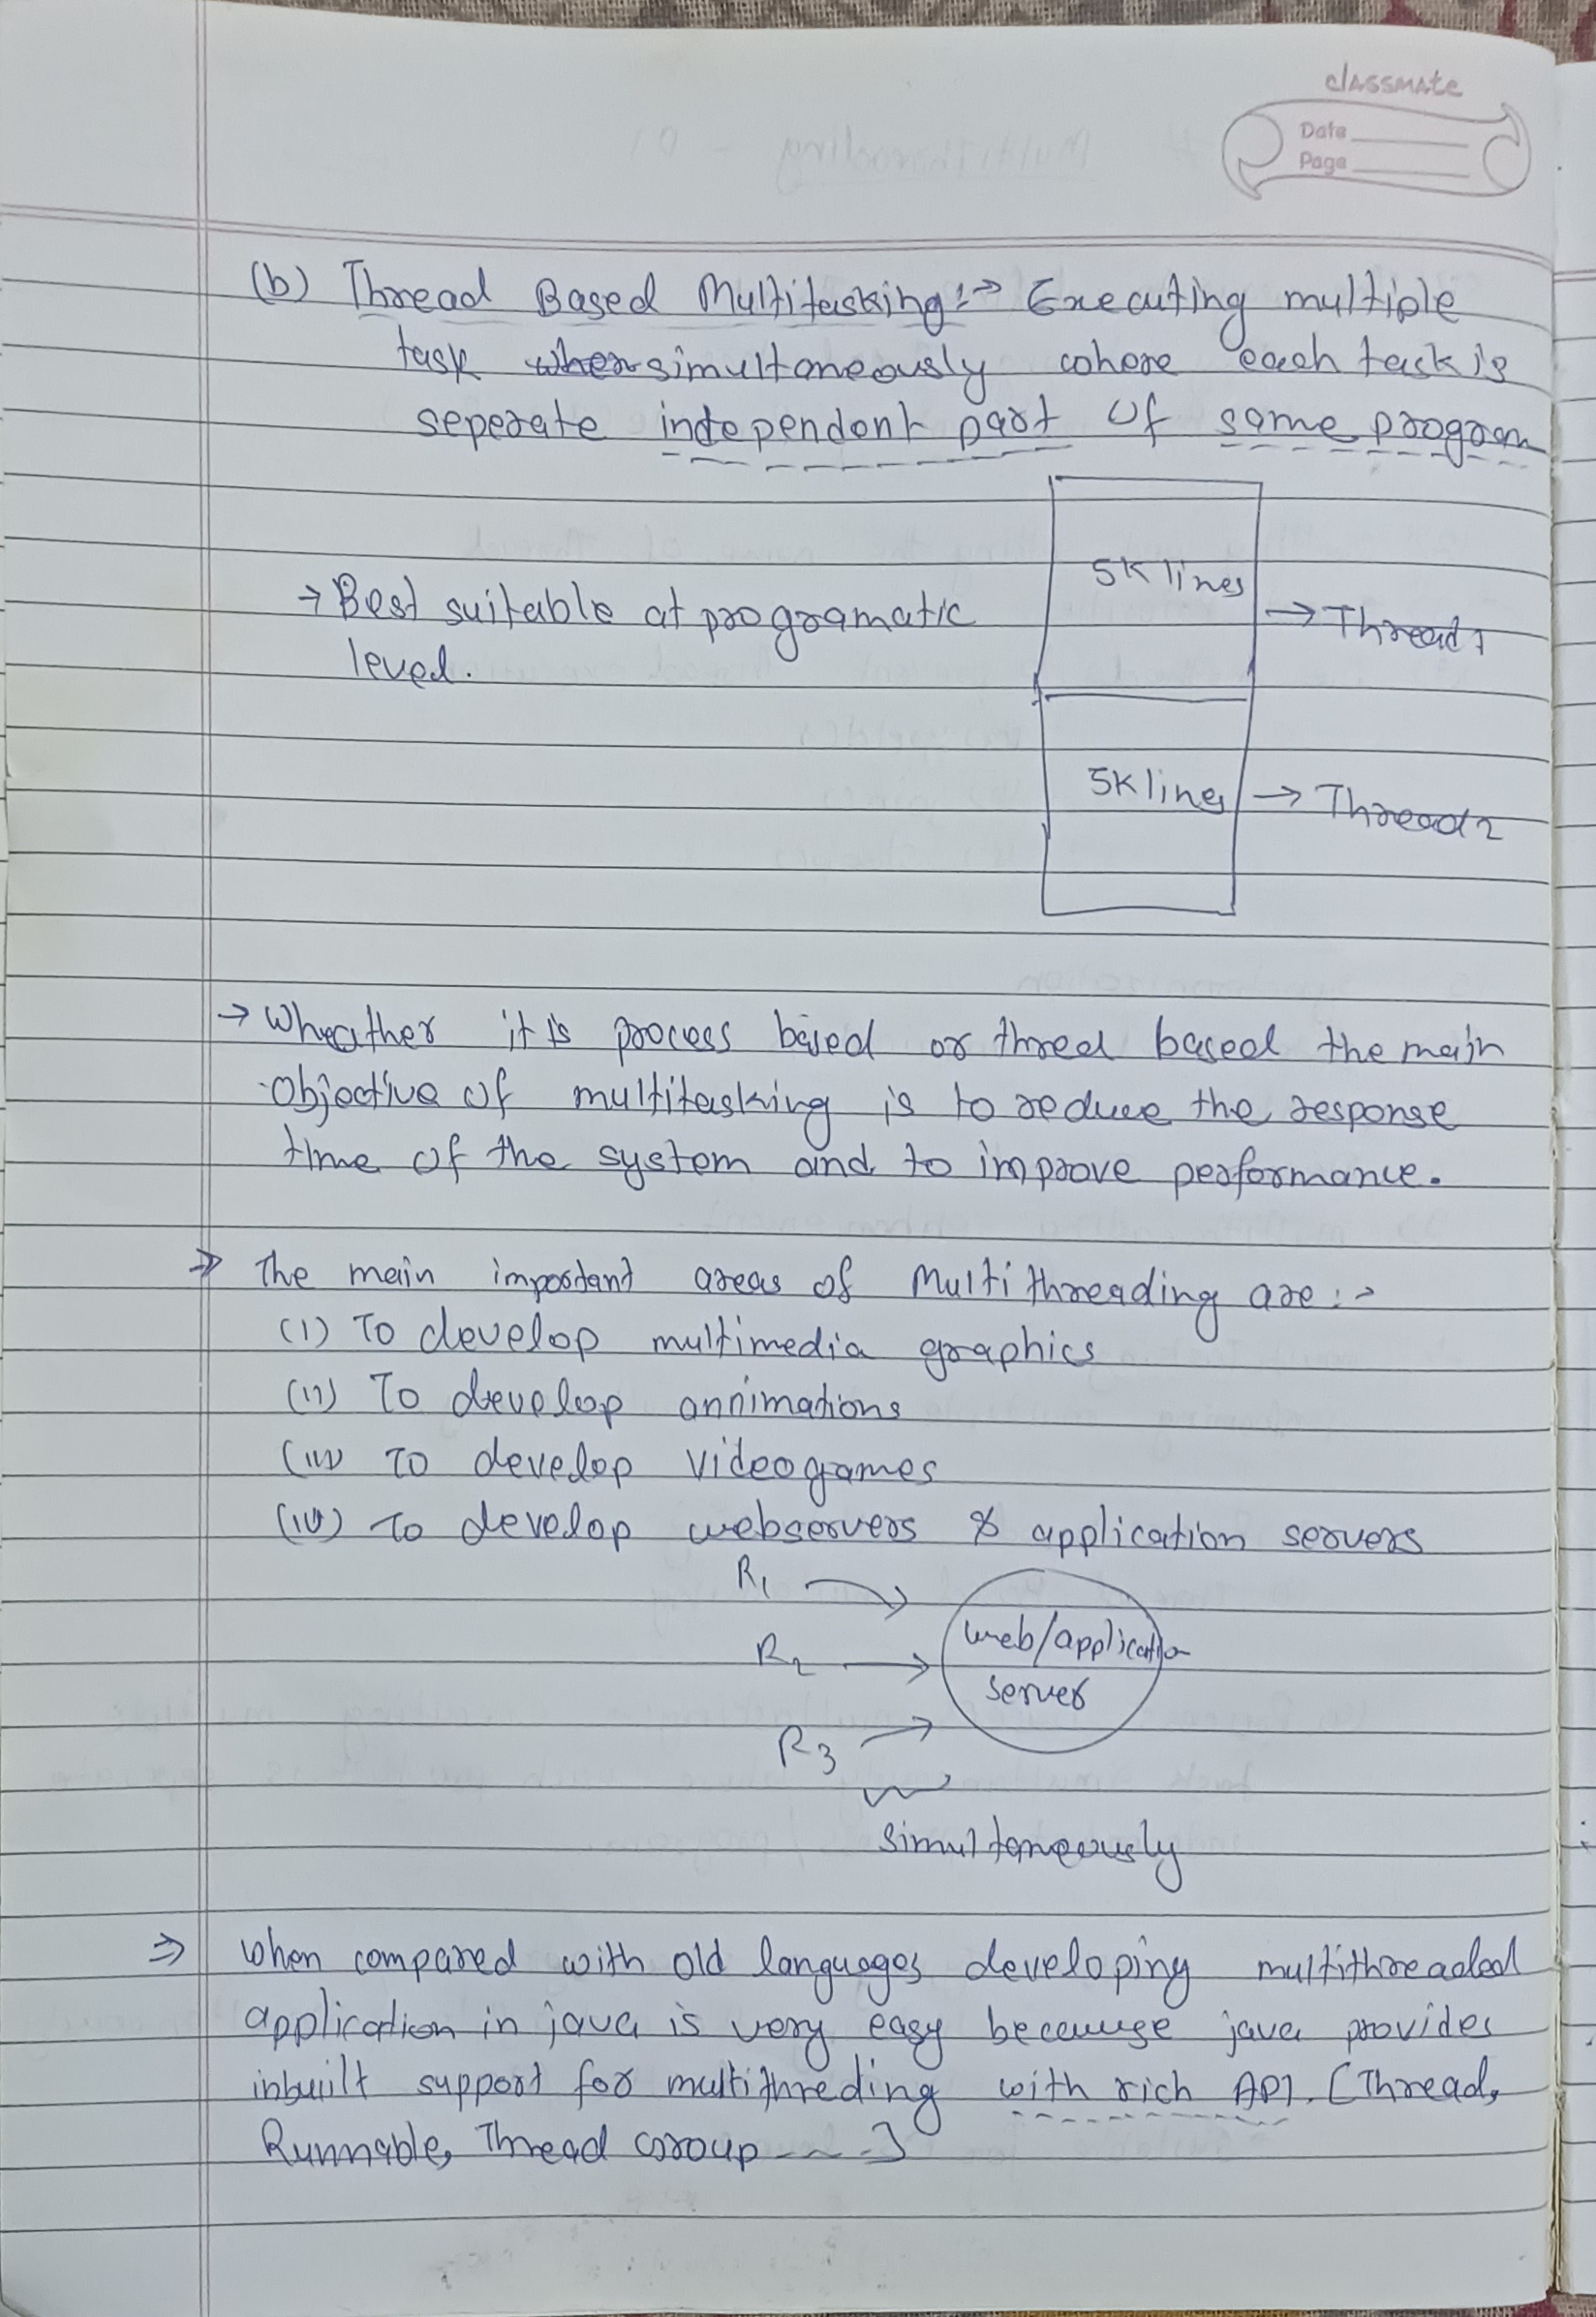 classmate
Date
Page
(b) Thread Based Multitasking :-> Executing multiple
task when simultaneously where each task is
seperate independent part of same program
5K lines
-> Thread 1
-> Best suitable at programatic
level.
5K lines -> Thread 2
-> Wheather it is process based or thred based the main
objective of multitasking is to reduce the response
time of the system and to improve performance.
=> The main important areas of Multithreading are :->
(i) To develop multimedia graphics
(ii) To develop annimations
(iii) To develop videogames
(iv) To develop webservers & application servers
R1
R2
web/application
server
R3
simultaneously
=> When compared with old languages developing multithreaded
application in java is very easy because java provides
inbuilt support for multithreding with rich API. [Thread,
Runnable, Thread Group ---]